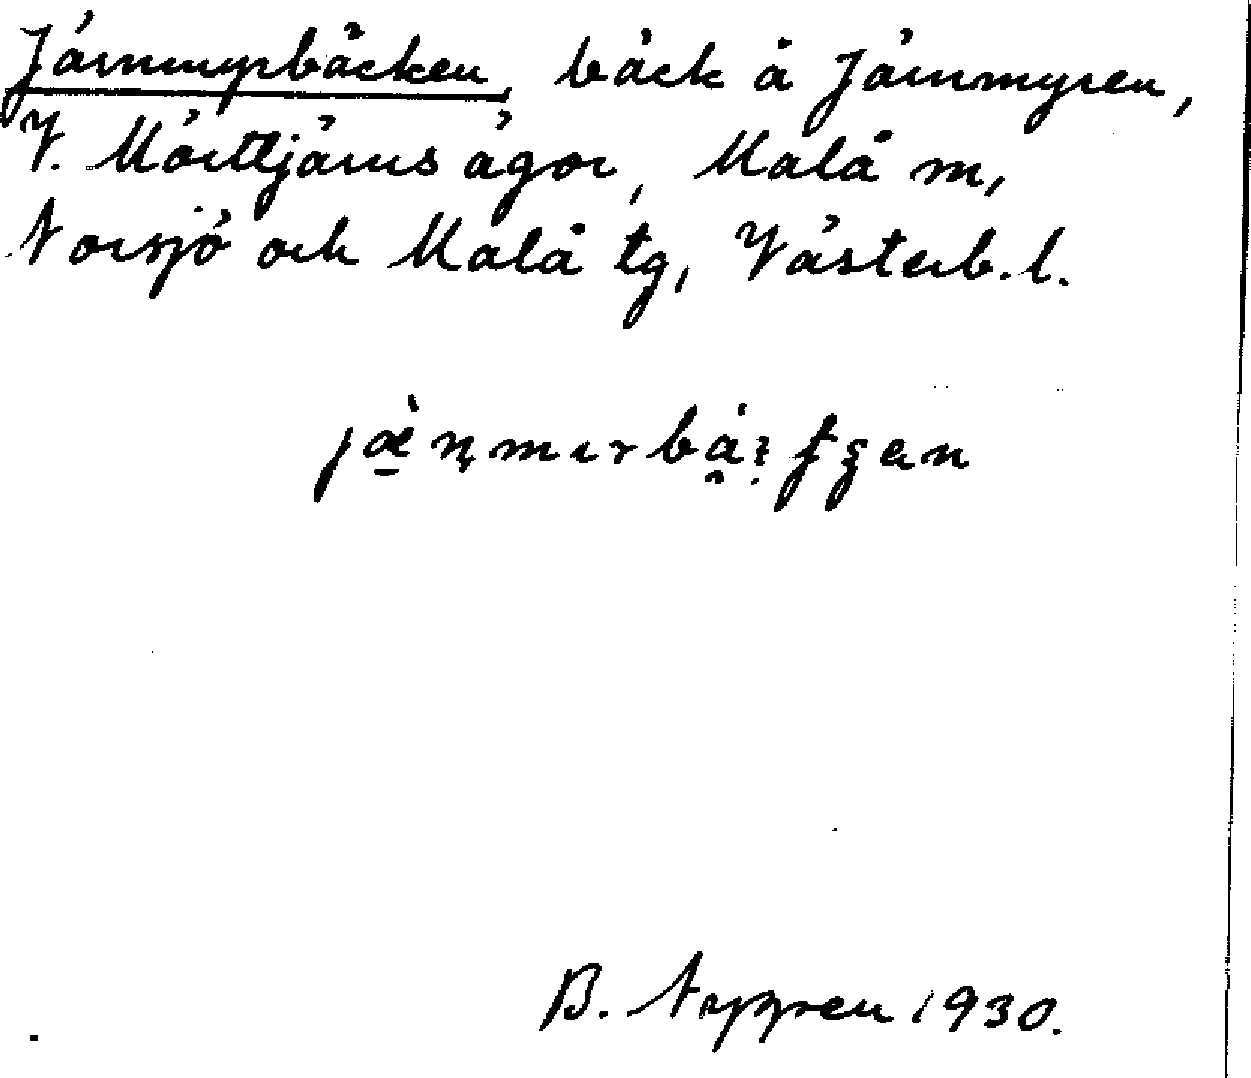 Järnmyrbäcken, bäck å Järnmyren,
V. Mörttjärns ägor, Malå m,
Norsjö och Malå tg, Västerb. l.
B. Nygren 1930.